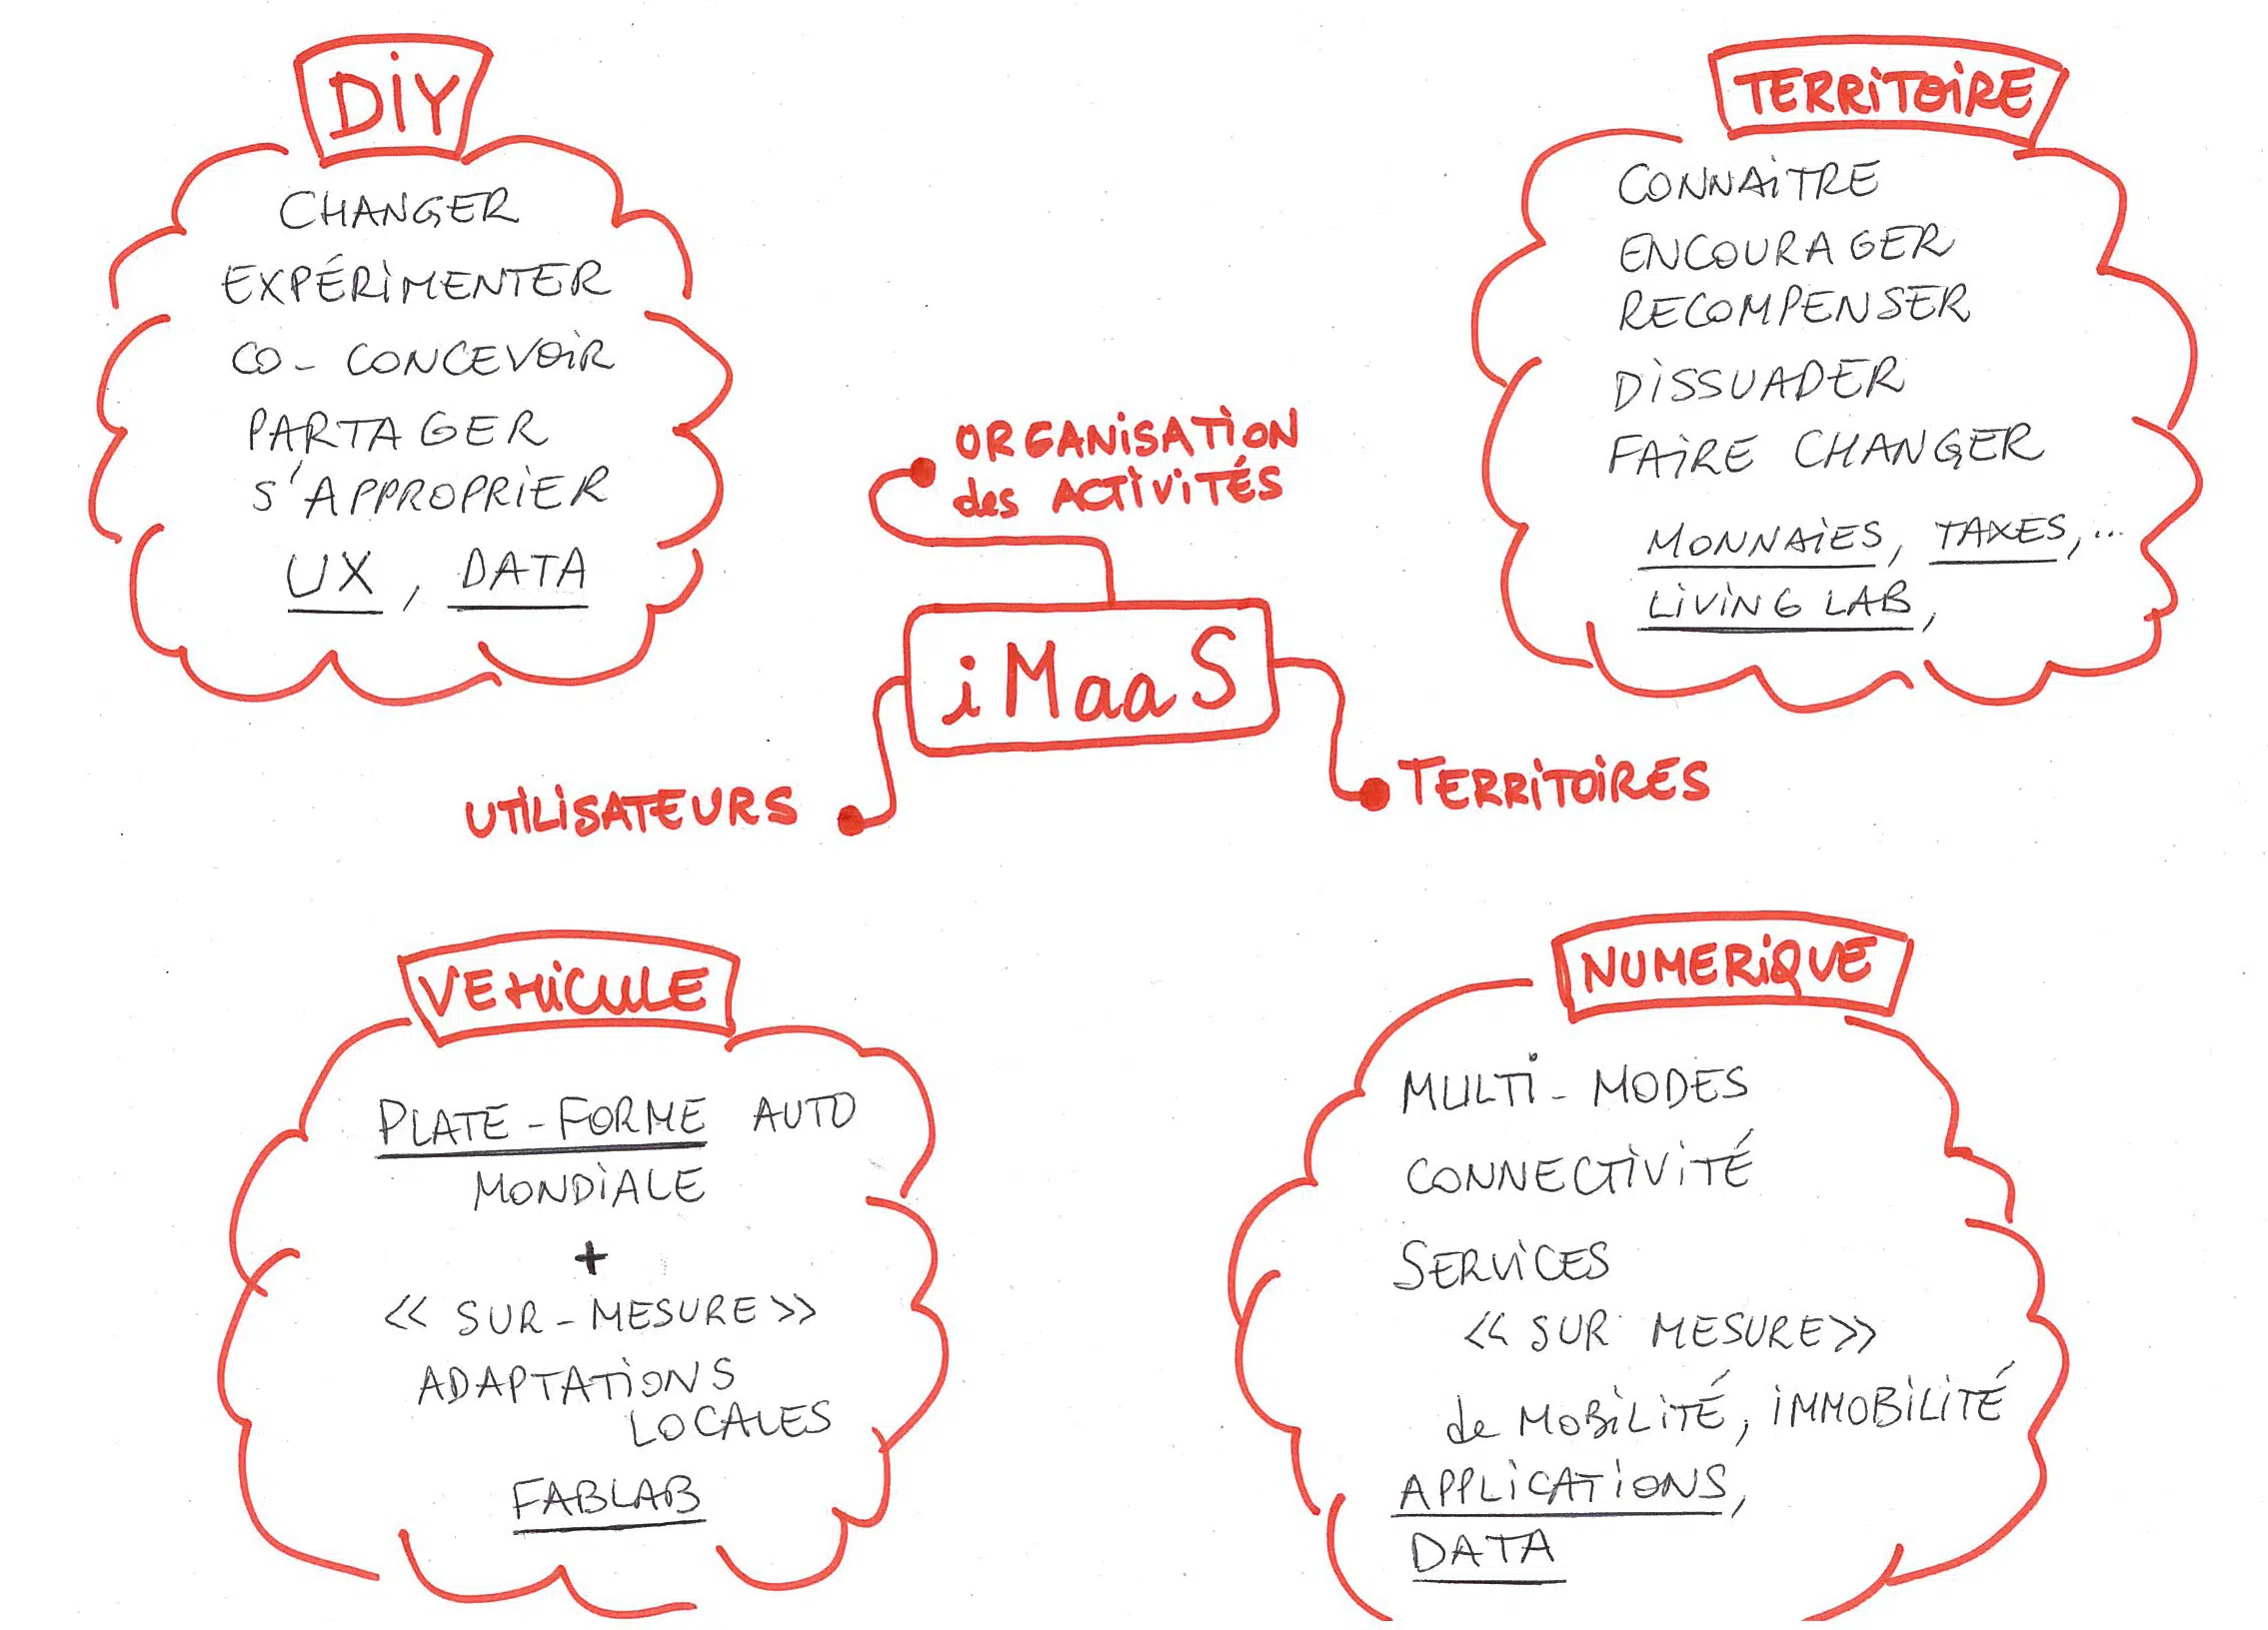 DiY
CHANGER
EXPÉRIMENTER
CO-CONCEVOIR
PARTAGER
S'APPROPRIER
UX, DATA
TERRITOIRE
CONNAITRE
ENCOURAGER
RECOMPENSER
DISSUADER
FAIRE CHANGER
MONNAIES, TAXES,...
LIVING LAB,
ORGANISATION
des ACTIVITÉS
iMaaS
UTILISATEURS
TERRITOIRES
VEHICULE
PLATE-FORME AUTO
MONDIALE
+
<< SUR-MESURE >>
ADAPTATIONS
LOCALES
FABLAB
NUMERIQUE
MULTI-MODES
CONNECTIVITÉ
SERVICES
<< SUR MESURE >>
de MOBILITÉ, IMMOBILITÉ
APPLICATIONS,
DATA